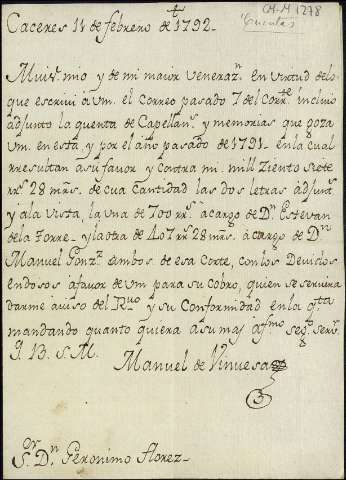 CA-M 1278
Cuentas
Caceres 11 de febrero de 1792.
Mui Sr. mio y de mi maior Veneraz.n En virtud de lo
que escrivi a Vm. el Correo pasado 7 del corr.te incluio
adjunto la quenta de Capellan.s y memorias que goza
Vm. en esta y por el año pasado de 1791. en la cual
rresultan a su favor y contra mi. mill Ziento siete
rr.s 28 mrs. de cua Cantidad las dos letras adjunt.s
y a la Vista, la una de 700 rr.s a cargo de D.n Estevan
de la Torre y la otra de 407 rr.s 28 mrs. a cargo de D.n
Manuel Gonz.z ambos de esa Corte, con los Devidos
endosos a favor de Vm para su Cobro, quien se servira
darme aviso del R.vo y su Conformidad en la q.ta
mandando quanto quiera a su mas af.mo seg.o serv.r
Q. B. S. M.
Manuel de Vinuesa
S.or D.n Geronimo Florez